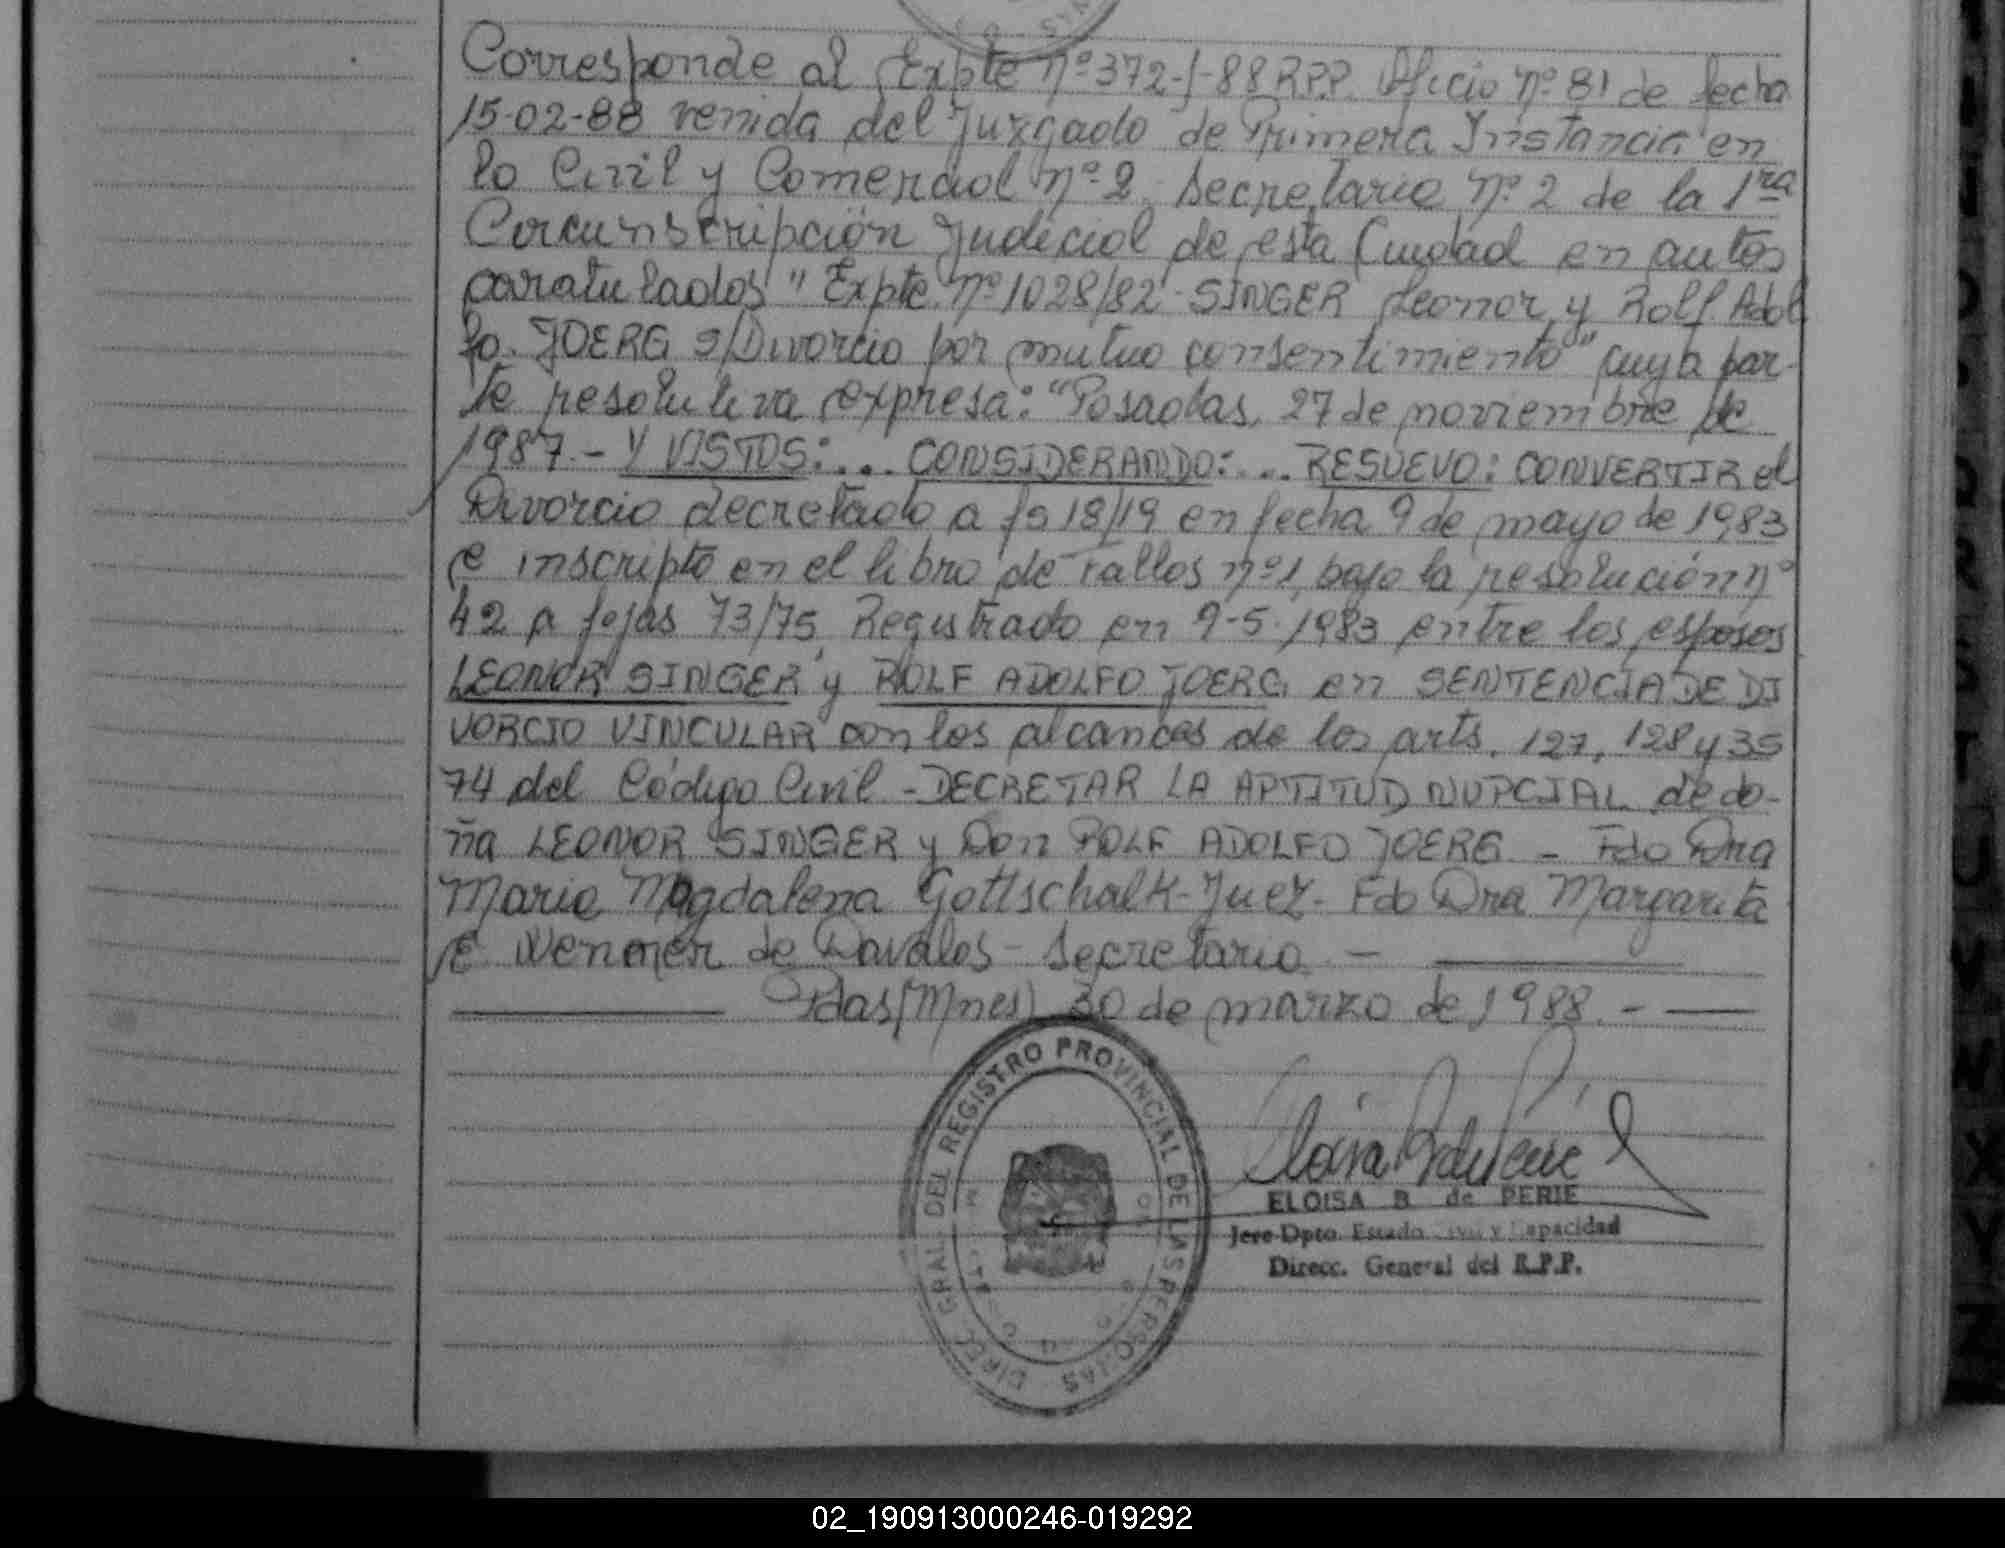 Corresponde al Expte nº 372-J-88 R.P.P. Oficio nº 81 de fecha
15-02-88 venida del Juzgado de Primera Instancia en
lo Civil y Comercial nº 2 Secretaria nº 2 de la 1ra
Circunscripción Judicial de esta Ciudad en autos
caratulados "Expte. nº 1028/82 - SINGER Leonor y Rolf Adol
fo. JOERG s/Divorcio por mutuo consentimiento" cuya par-
te resolutiva expresa: "Posadas, 27 de noviembre de
1987.- Y VISTOS: ... CONSIDERANDO: ... RESUEVO: CONVERTIR el
Divorcio decretado a fs 18/19 en fecha 9 de mayo de 1983
e inscripto en el libro de Fallos nº 1, bajo la resolución nº
42 a fojas 73/75, Registrado en 9-5-1983 entre los esposos
LEONOR SINGER y ROLF ADOLFO JOERG en SENTENCIA DE DI
VORCIO VINCULAR con los alcances de los arts. 127, 128 y 35
74 del Código Civil - DECRETAR LA APTITUD NUPCIAL de do-
ña LEONOR SINGER y Don ROLF ADOLFO JOERG. - Fdo Dra
Maria Magdalena Gottschalk - Juez - Fdo Dra Margarita
E Wenner de Davalos - Secretaria -
Pdas (Mnes) 30 de marzo de 1988. -
DIREC. GRAL. DEL REGISTRO PROVINCIAL DE LAS PERSONAS
ELOISA B de PERIE
Jefe Dpto. Estado Civil y Capacidad
Direcc. General del R.P.P.
02_190913000246-019292